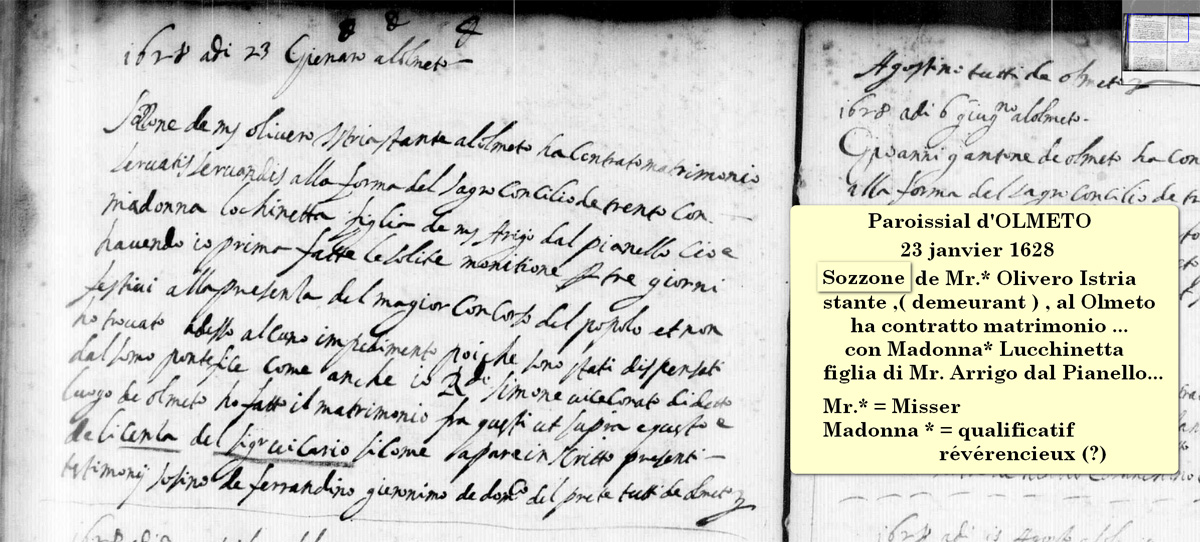 1628 adi 23 Genaro alolmeto
Sozzone de mr olivero Istria stante alolmeto ha Contrato matrimonio
servatis servandis alla forma del sagro Concilio de trento Con
madonna lochinetta figlia de mr Arigo dal pianello Cioe
havendo io prima fatte le solite monitione p tre giorni
festivi alla presenza del magior Concorso del popolo et non
ho trovato adesso alcuno impedimento poiche sono stati dispensati
dal somo pontefice Come anche io simone vicecurato di detto
luogo de olmeto ho fatto il matrimonio fra questi ut supra e questo e
de licenza del sigr vicario si come apare in scritto presenti
testimonij sosino de ferrandino gieronimo de del prete tutti de olmeto
Agostini tutti da olmeto
1628 adi 6 giugno alolmeto
Giovanni de olmeto ha Con
alla forma del sagro Concilio de
Paroissial d'OLMETO
23 janvier 1628
Sozzone de Mr.* Olivero Istria
stante ,( demeurant ) , al Olmeto
ha contratto matrimonio ...
con Madonna* Lucchinetta
figlia di Mr. Arrigo dal Pianello...
Mr.* = Misser
Madonna * = qualificatif
révérencieux (?)
1628 adi